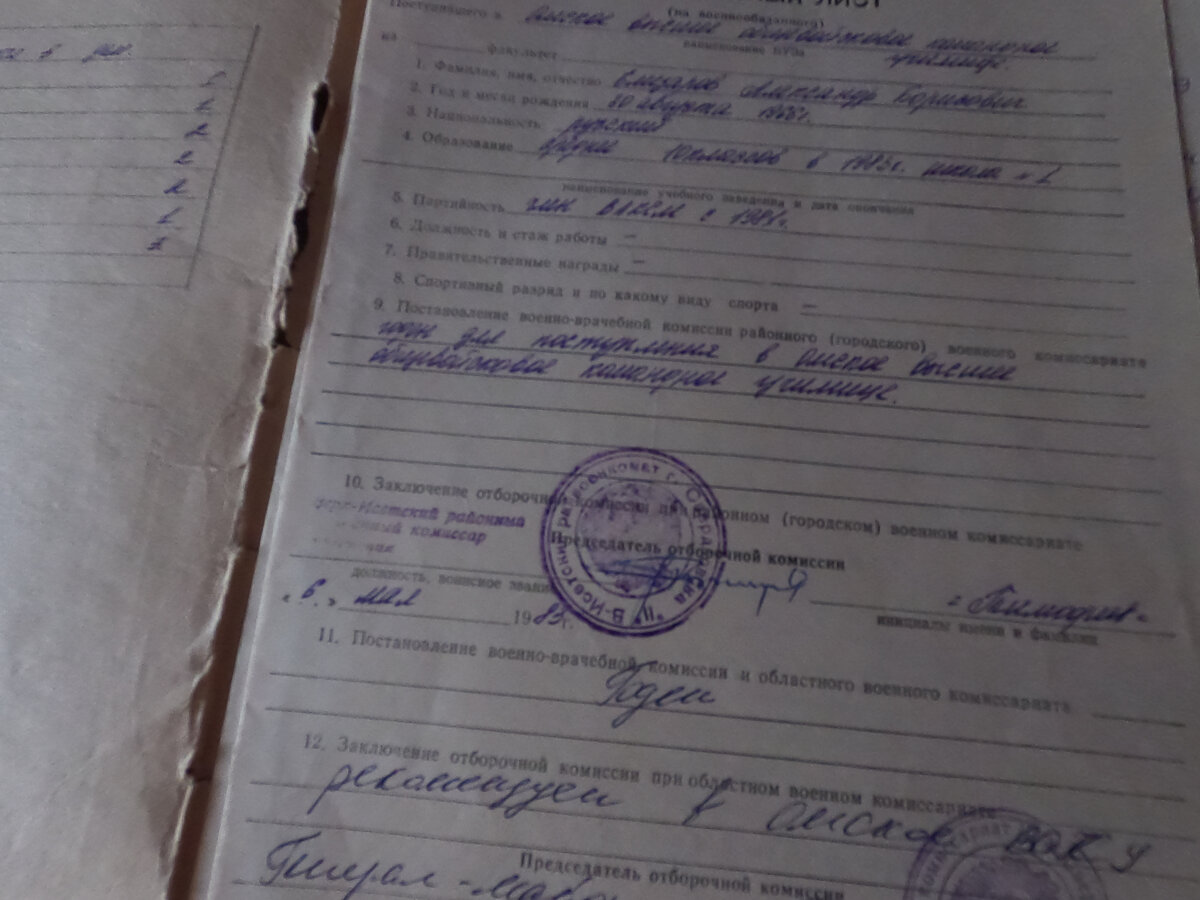 ЛИСТ
(на военнообязанного)
Поступившего в Омское высшее общевойсковое командное
наименование ВУЗа
училище
на факультет
1. Фамилия, имя, отчество Александр Борисович
2. Год и место рождения 30 августа 1965г.
3. Национальность русский
4. Образование 10 классов в 1983г. школа №1
наименование учебного заведения и дата окончания
5. Партийность член ВЛКСМ с 1981г.
6. Должность и стаж работы —
7. Правительственные награды —
8. Спортивный разряд и по какому виду спорта —
9. Постановление военно-врачебной комиссии районного (городского) военного комиссариата
годен для поступления в Омское высшее
общевойсковое командное училище.
10. Заключение отборочной комиссии при районном (городском) военном комиссариате
Исетский районный
комиссар
Председатель отборочной комиссии
должность, воинское звание
« 6. » мая 1983г.
инициалы имени и фамилия
В-Исетский райвоенкомат г. Свердловска
11. Постановление военно-врачебной комиссии и областного военного комиссариата
Годен
12. Заключение отборочной комиссии при областном военном комиссариате
рекомендуем в Омское ВОКУ
Председатель отборочной комиссии
Генерал-майор